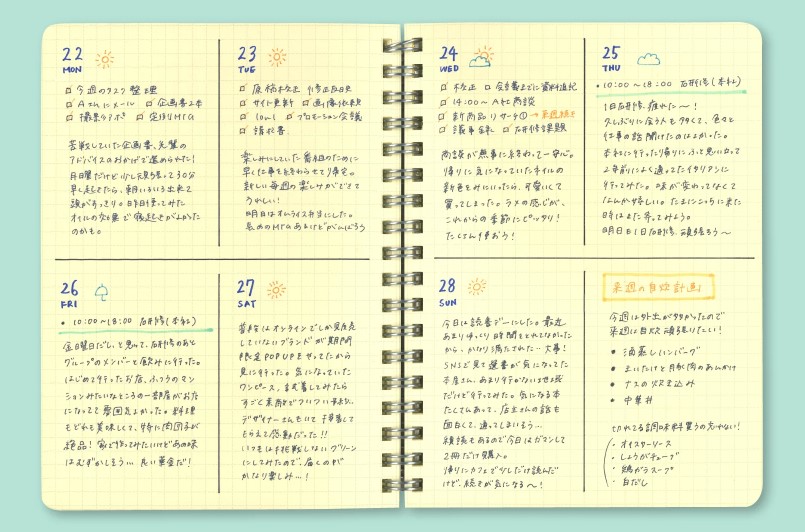 22
MON
今週のタスク整理
Aさんにメール 企画書2本
撮影 定例MTG
苦戦していた企画書、先輩の
アドバイスのおかげで進められた!
月曜日だけど少し頑張って30分
早く起きたら、朝いろいろ出来て
頭がすっきり。昨日使ってみた
オイルの効果で寝起きがよかった
のかも。
23
TUE
原稿校正 修正反映
サイト更新 画像依頼
10〜11 プロモーション会議
請求書
楽しみにしていた番組のために
早く仕事を終わらせて帰宅。
新しい毎週の楽しみができて
うれしい!
明日はオムライス弁当にした。
長めのMTGあるけどがんばろう
24
WED
校正 会議までに資料追記
14:00〜 A社商談
新商品リサーチ① → 来週続き
議事録 研修課題
商談が無事に終わって一安心。
帰りに気になっていたネイルの
新色をみにいったら、可愛いくて
買ってしまった。ラメの感じが、
これからの季節にピッタリ!
たくさん使おう!
25
THU
10:00〜18:00 研修(本社)
1日研修、疲れた〜!
久しぶりに会う人も多くて、色々と
仕事の話聞けたのはよかった。
本社に行った帰りにふと思い立って
2年前によく通ってたイタリアンに
行ってみた。味が変わってなくて
なんか嬉しい。たまにこっちに来た
時はまた寄ってみよう。
明日も1日研修、頑張ろう〜
26
FRI
10:00〜18:00 研修(本社)
金曜日だし、と思って、研修のあと
グループのメンバーと飲みに行った。
はじめて行ったお店、ふつうのマン
ションみたいなところの一部屋がお店
になってて雰囲気よかった。料理
もどれも美味しくて、特に肉団子が
絶品!家で作ってみたいけどあの味
はむずかしそう… 良い華金だ!
27
SAT
普段はオンラインでしか発売
していないブランドが期間
限定POPUPをやってたから
見に行った。気になっていた
ワンピース、試着してみたら
すごく素敵でついつい
デザイナーさんもいて
もらえて感動だった!!
いつもは挑戦しないグリーン
にしてみたので、届くのが
かなり楽しみ…!
28
SUN
今日は読書デーにした。最近
あまりゆっくり時間をとれてなかった
から、かなり満たされた…大事!
SNSで見て選書が気になってた
本屋さん、あまり行かないエリア
だけど行ってみた。気になる本
たくさんあって、店主さんの話も
面白くて、通ってしまいそう…
積読もあるので今日はガマンして
2冊だけ購入。
帰りにカフェで少しだけ読んだ
けど、続きが気になる〜!
来週の自炊計画
今週は外出が多かったので
来週は自炊頑張りたい!
煮込みハンバーグ
ナスの炊き込み
中華丼
切れてる調味料買うの忘れない!
・オイスターソース
・しょうがチューブ
・鶏がらスープ
・白だし